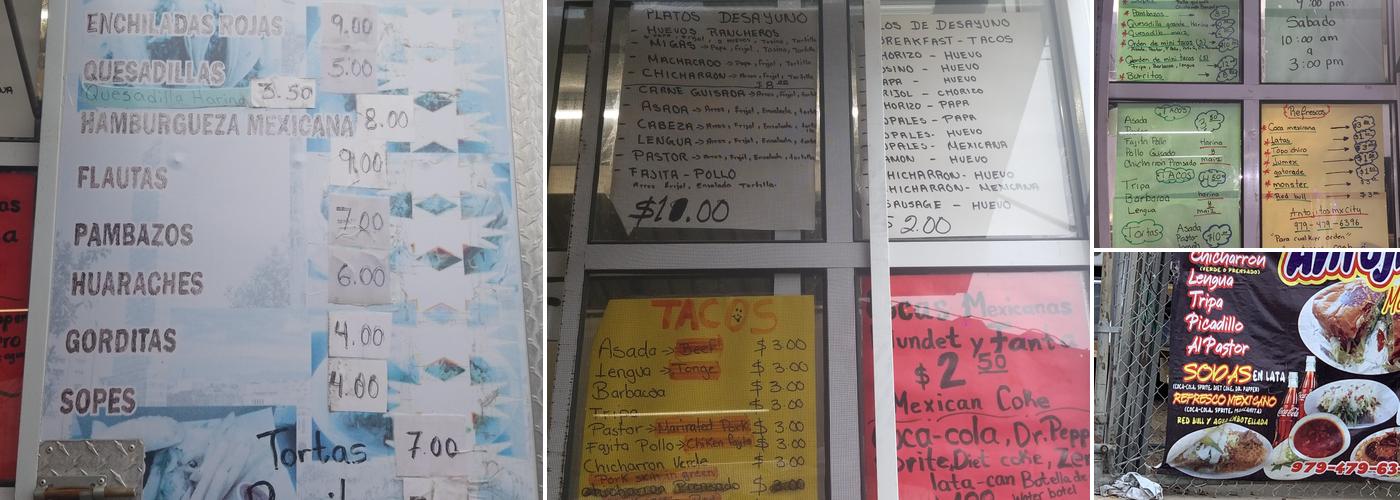 ENCHILADAS ROJAS 9.00
QUESADILLAS 5.00
Quesadilla Harina 8.50
HAMBURGUEZA MEXICANA 8.00
FLAUTAS 9.00
PAMBAZOS 7.00
HUARACHES 6.00
GORDITAS 4.00
SOPES 4.00
Tortas 7.00
PLATOS DESAYUNO
HUEVOS RANCHEROS
MIGAS → Papa, Frijol, Tosino, Tortilla
MACHACADO → Papa, Frijol, Tosino, Tortilla
CHICHARRON →
CARNE GUISADA → Arros, Frijol, Ensalada
ASADA → Arros, Frijol, Ensalada
CABEZA → Arros, Frijol, Ensalada
LENGUA → Arros, Frijol, Ensalada
PASTOR → Arros, Frijol, Ensalada
FAJITA - POLLO
Arros Frijol, Ensalada Tortilla.
.00
OS DE DESAYUNO
BREAKFAST - TACOS
HORIZO - HUEVO
OSINO - HUEVO
APA - HUEVO
RIJOL - CHORIZO
HORIZO - PAPA
OPALES - HUEVO
OPALES - HUEVO
AMON - HUEVO
HICHARRON - HUEVO
HICHARRON - MEXICANA
SAUSAGE - HUEVO
$ 2.00
TACOS
Asada → Beef $ 3.00
Lengua → Tonge $ 3.00
Barbacoa $ 3.00
$ 3.00
Pastor → Marirated Pork $ 3.00
Fajita Pollo → Chiken Fajita $ 3.00
Chicharron Verde $ 3.00
Pork skin in green
ocas Mexicanas
undet y fant
$ 2 50
Mexican Coke
oca-cola, Dr. Pepp
prite, Diet coke, Ze
lata-can Botella de
Water botel
Pambazos
Quesadilla grande Harina
Quesadilla maiz
Orden de mini tacos (5)
Orden de mini tacos (5)
Tripa, Barbacoa, lengua
Burritos
9:00 pm.
Sabado
10:00 am
a
3:00 pm
TACOS
Asada
Fajita Pollo Harina
Pollo Guisado y
Chicharron Prensado maiz
TACOS
Tripa
Barbacoa harina
Lengua y maiz
Tortas Asada
Pastor
Refrescos
Coca mexicana
Latas
Topo chico
Jumex
gatorade
monster
Red bull
Antojitos mx City
979-479-6396
"Para cualkier orden"
Chicharron
(VERDE O PRENSADO)
Lengua
Tripa
Picadillo
Al Pastor
ANTOJI
SODAS EN LATA
(COCA-COLA, SPRITE, DIET COKE, DR. PEPPER)
REFRESCO MEXICANO
(COCA-COLA, SPRITE, MANZANITA)
RED BULL Y AGUA EMBOTELLADA
979-479-63